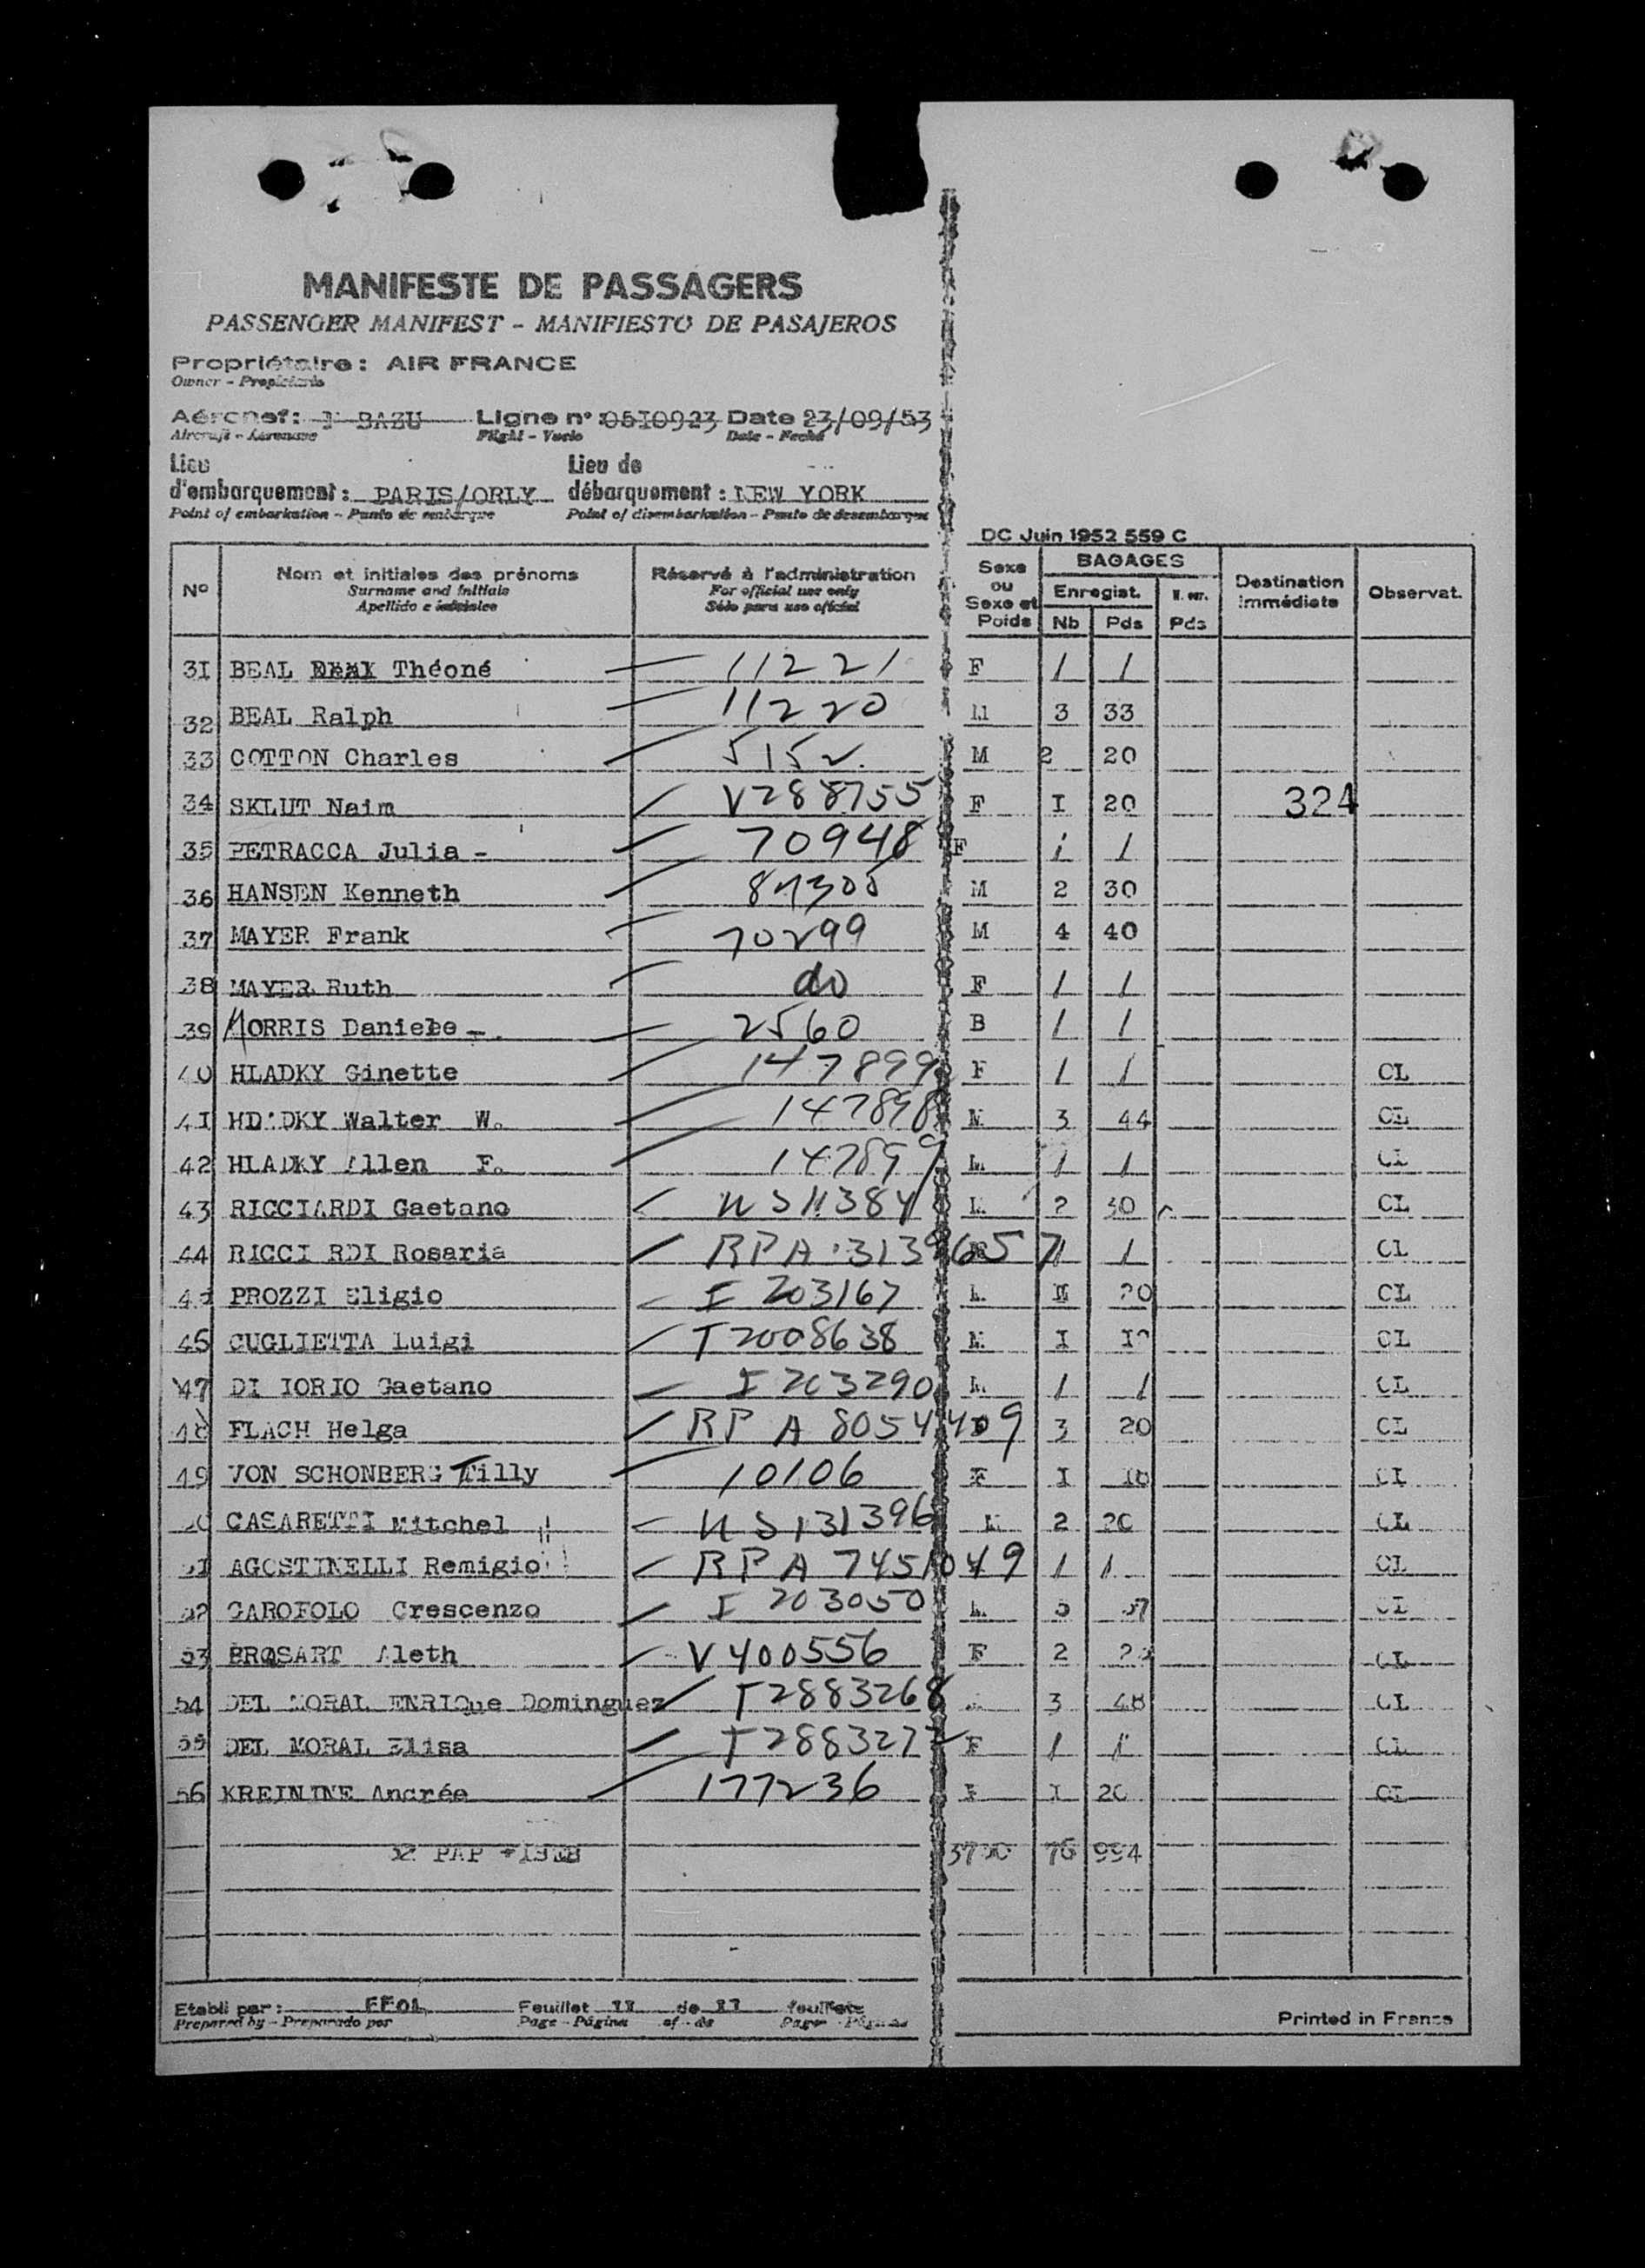 MANIFESTE DE PASSAGERS
PASSENGER MANIFEST - MANIFIESTO DE PASAJEROS
Propriétaire : AIR FRANCE
Owner - Propietario
Aéronef : BAZU Ligne n° 05I0923 Date 23/09/53
Aircraft - Aeronave Flight - Vuelo Date - Fecha
Lieu Lieu de
d'embarquement : PARIS/ORLY débarquement : NEW YORK
Point of embarkation - Punto de embarque Point of disembarkation - Punto de desembarque
DC Juin 1952 559 C
N° Nom et initiales des prénoms Réservé à l'administration Sexe ou Sexe et Poids BAGAGES Destination immédiate Observat.
Surname and initials For official use only Enregist. N. enr.
Apellido e iniciales Sólo para uso oficial Nb Pds Pds
3I BEAL Théoné 11221 F / /
32 BEAL Ralph 11220 M 3 33
33 COTTON Charles 5152 M 2 20
34 SKLUT Naim V288755 F I 20 324
35 PETRACCA Julia - 70948 F / /
36 HANSEN Kenneth M 2 30
37 MAYER Frank 70299 M 4 40
38 MAYER Ruth do F / /
39 MORRIS Daniele - 2560 B / /
40 HLADKY Ginette 147899 F / / CL
4I HDADKY Walter W. 147898 M 3 44 CL
42 HLADKY Allen F. 147899 M / / CL
43 RICCIARDI Gaetano US 11384 M 2 30 CL
44 RICCI RDI Rosaria RPA 3139657 / / CL
45 PROZZI Eligio I 203167 M 20 CL
46 GUGLIETTA Luigi T2008638 M I CL
47 DI IORIO Gaetano I 203290 M / / CL
48 FLACH Helga RP A 8054409 3 20 CL
49 VON SCHONBERG Tilly 10106 F I CL
50 CASARETTI Mitchel US 131396 M 2 20 CL
5I AGOSTINELLI Remigio RPA 7451049 / / CL
52 GAROFOLO Crescenzo I 203050 M CL
53 BROSART Aleth V400556 F 2 CL
54 DEL MORAL ENRIQue Dominguez T2883268 3 48 CL
55 DEL MORAL Elisa T288327 F / / CL
56 KREININE Andrée 177236 F I 20 CL
52 PAP + 76 994
Etabli par : Feuillet de feuillets
Prepared by - Preparado por Page - Página of - de Pages - Páginas
Printed in France